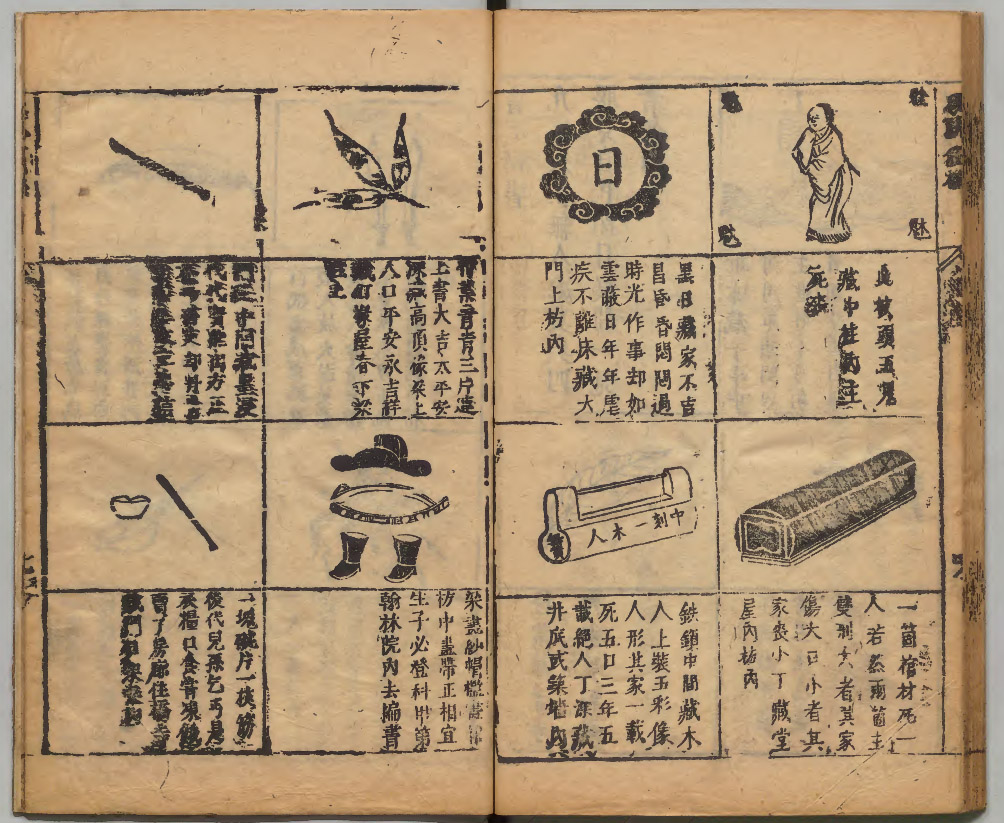 披頭五鬼
藏中柱內主
死喪
黑日藏家不吉
昌昏昏悶悶過
時光作事却如
雲蔽日年年瘧
疾不離床藏大
門上枋內
竹葉青青三片連
上書大吉太平安
深藏高頂椽梁上
人口平安永吉祥
藏釘椽屋脊下梁
柱上
代代賢能出方正
一箇棺材死一
人若然兩箇主
雙刑大者其家
傷大口小者其
家喪小丁藏堂
屋內枋內
鉄鎖中間藏木
人上裝五彩像
人形其家一載
死五口三年五
載絕人丁深藏
井底或築墻內
梁畫紗帽檻畫靴
枋中畫帶正相宜
生子必登科甲第
翰林院內去編書
一塊碗片一枝筯
後代兒孫乞丐是
衣糧口食常凍餓
賣了房廊住橋寺
日
中刻一木人